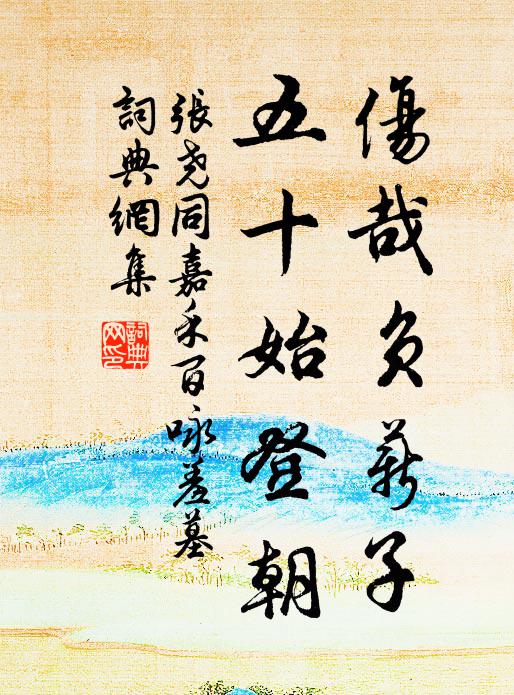 傷哉負薪子
五十始登朝
張尭同嘉禾百咏羞墓
詞典網集
詞典
网印